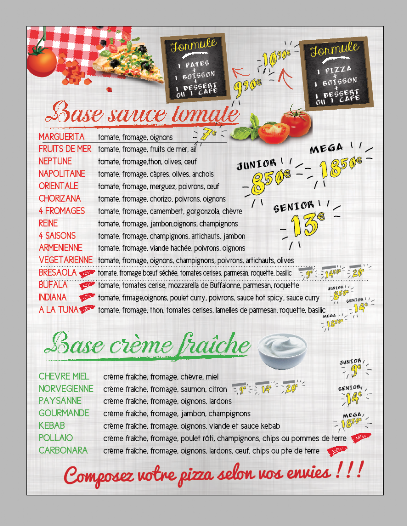 Formule
1 PATES
+
1 BOISSON
+
1 DESSERT
OU 1 CAFE
Formule
1 PIZZA
+
1 BOISSON
+
1 DESSERT
OU 1 CAFE
Base sauce tomate
MARGUERITA tomate, fromage, oignons
FRUITS DE MER tomate, fromage, fruits de mer, ail
NEPTUNE tomate, fromage,thon, olives, œuf
NAPOLITAINE tomate, fromage, câpres, olives, anchois
ORIENTALE tomate, fromage, merguez, poivrons, œuf
CHORIZANA tomate, fromage, chorizo, poivrons, oignons
4 FROMAGES tomate, fromage, camembert, gorgonzola, chèvre
REINE tomate, fromage, jambon,oignons, champignons
4 SAISONS tomate, fromage, champignons, artichauts, jambon
ARMENIENNE tomate, fromage, viande hachée, poivrons, oignons
VEGETARIENNE tomate, fromage, oignons, champignons, poivrons, artichauts, olives
BRESAOLA tomate, fromage bœuf séchée, tomates cerises, parmesan, roquette, basilic
BUFALA tomate, tomates cerise, mozzarella de Buffalonne, parmesan, roquette
INDIANA tomate, frmage,oignons, poulet curry, poivrons, sauce hot spicy, sauce curry
A LA TUNA tomate, fromage, thon, tomates cerises, lamelles de parmesan, roquette, basilic
JUNIOR
850€
MEGA
1850€
SENIOR
13€
JUNIOR
SENIOR
MEGA
Base crème fraîche
CHEVRE MIEL crème fraîche, fromage, chèvre, miel
NORVEGIENNE crème fraîche, fromage, saumon, citron
PAYSANNE crème fraîche, fromage, oignons, lardons
GOURMANDE crème fraîche, fromage, jambon, champignons
KEBAB crème fraîche, fromage, oignons, viande et sauce kebab
POLLAIO crème fraîche, fromage, poulet rôti, champignons, chips ou pommes de terre
CARBONARA crème fraîche, fromage, oignons, lardons, œuf, chips ou pte de terre
JUNIOR
9€
SENIOR
14€
MEGA
Composez votre pizza selon vos envies !!!